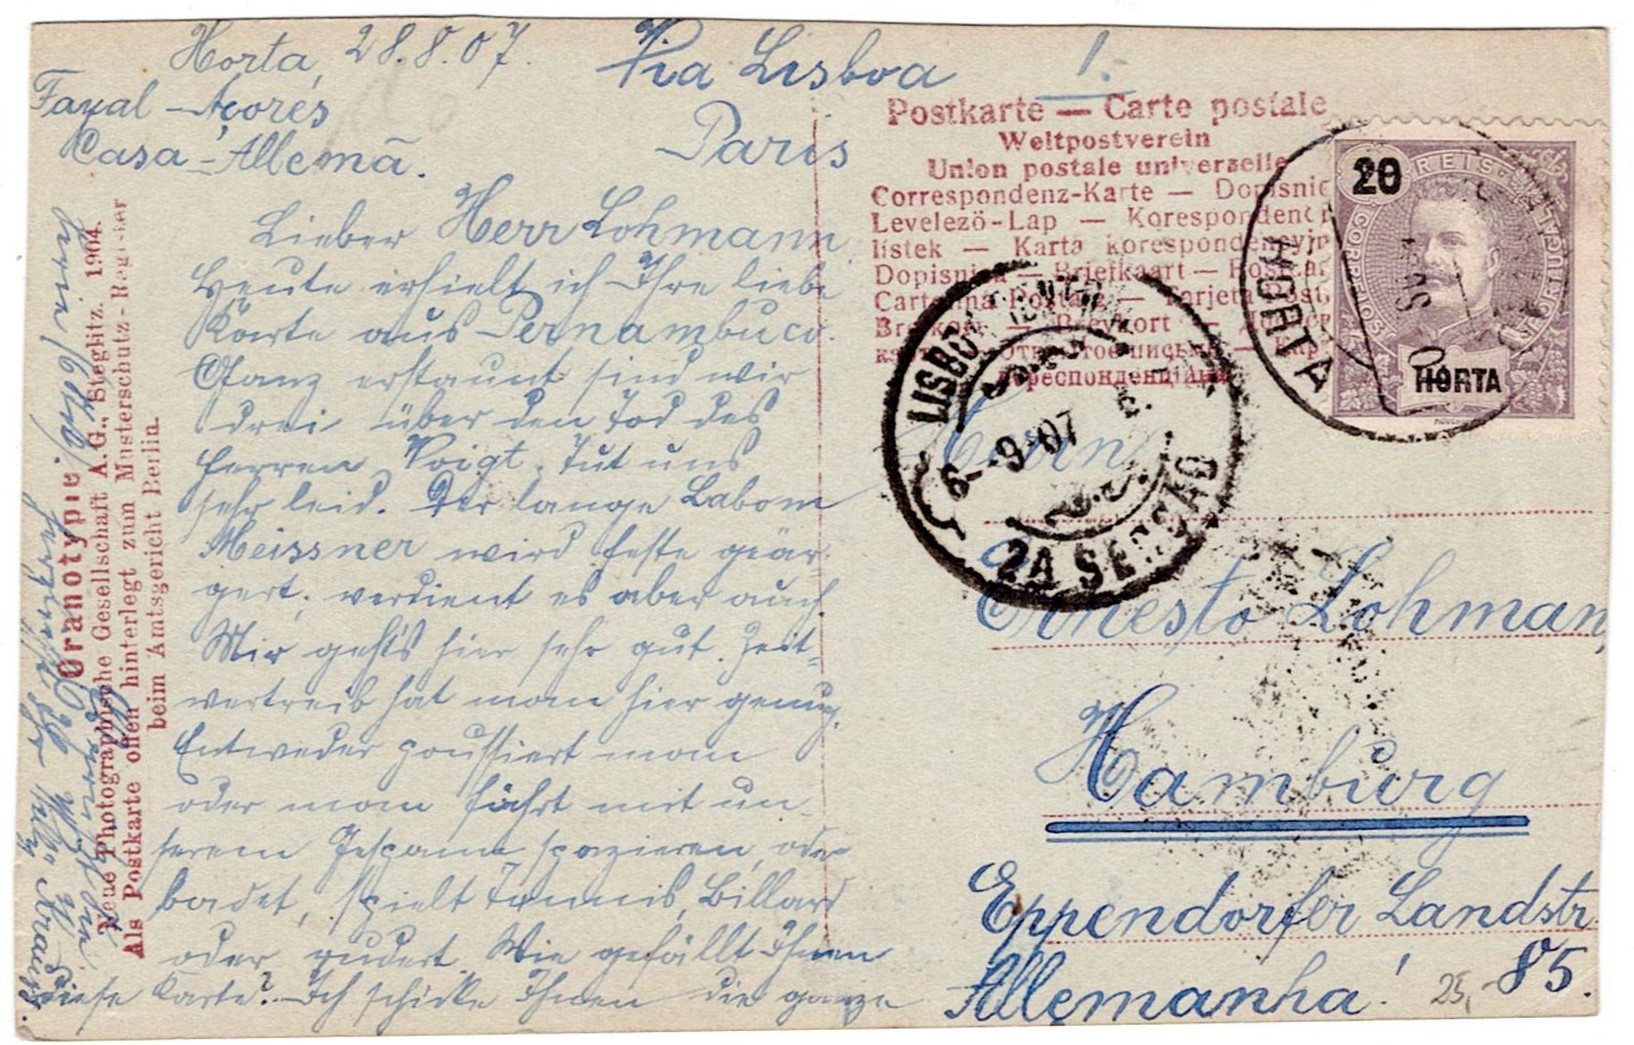 Horta, 28.8.07.
Fayal - Açores
Casa - Allemã.
Via Lisboa
Paris
1.
Lieber Herr Lohmann
Heute erhielt ich Ihre liebe
Karte aus Pernambuco.
Ganz erstaunt sind wir
drei über den Tod des
Herren Voigt. Tut uns
sehr leid. Der lange Labom
Meissner wird feste geär-
gert; verdient es aber auch.
Mir geht's hier sehr gut. Zeit-
vertreib hat man hier genug.
Entweder poussiert man
oder man fährt mit un-
serem Gespann spazieren, oder
badet, spielt Tennis, Billard
oder rudert. Wie gefällt Ihnen
diese Karte? Ich schicke Ihnen die ganze
Serie (6 Stck).
Oranotypie
Neue Photographische Gesellschaft A. G., Steglitz. 1904.
Als Postkarte offen hinterlegt zum Musterschutz-Register
beim Amtsgericht Berlin.
Postkarte — Carte postale
Weltpostverein
Union postale universelle
Correspondenz-Karte — Dopisnic
Levelező-Lap — Korespondenč
listek — Karta korespondencyjn
Briefkaart —
REIS
20
CORREIOS
PORTUGAL
HORTA
HORTA
LISBOA CENTRAL
6 - 9 - 07
2A SECÇÃO
Herrn
Ernesto Lohmann,
Hamburg
Eppendorfer Landstr.
85.
Allemanha!
25,-